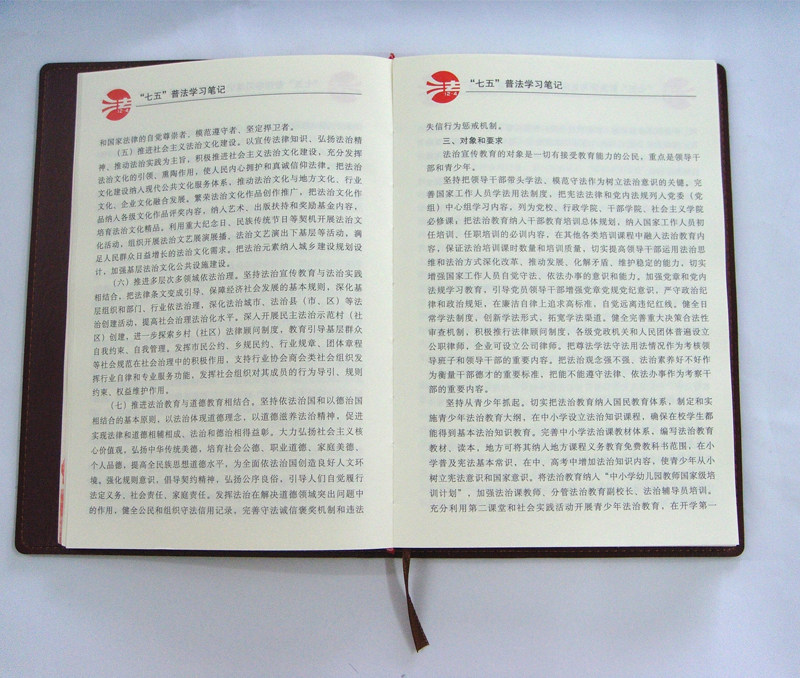 “七五”普法学习笔记
和国家法律的自觉尊崇者、模范遵守者、坚定捍卫者。
（五）推进社会主义法治文化建设。以宣传法律知识、弘扬法治精
神、推动法治实践为主旨，积极推进社会主义法治文化建设，充分发挥
法治文化的引领、熏陶作用，使人民内心拥护和真诚信仰法律。把法治
文化建设纳入现代公共文化服务体系，推动法治文化与地方文化、行业
文化、企业文化融合发展。繁荣法治文化作品创作推广，把法治文化作
品纳入各级文化作品评奖内容，纳入艺术、出版扶持和奖励基金内容，
培育法治文化精品。利用重大纪念日、民族传统节日等契机开展法治文
化活动，组织开展法治文艺展演展播、法治文艺演出下基层等活动，满
足人民群众日益增长的法治文化需求。把法治元素纳入城乡建设规划设
计，加强基层法治文化公共设施建设。
（六）推进多层次多领域依法治理。坚持法治宣传教育与法治实践
相结合，把法律条文变成引导、保障经济社会发展的基本规则，深化基
层组织和部门、行业依法治理，深化法治城市、法治县（市、区）等法
治创建活动，提高社会治理法治化水平。深入开展民主法治示范村（社
区）创建，进一步探索乡村（社区）法律顾问制度，教育引导基层群众
自我约束、自我管理。发挥市民公约、乡规民约、行业规章、团体章程
等社会规范在社会治理中的积极作用，支持行业协会商会类社会组织发
挥行业自律和专业服务功能，发挥社会组织对其成员的行为导引、规则
约束、权益维护作用。
（七）推进法治教育与道德教育相结合。坚持依法治国和以德治国
相结合的基本原则，以法治体现道德理念，以道德滋养法治精神，促进
实现法律和道德相辅相成、法治和德治相得益彰。大力弘扬社会主义核
心价值观，弘扬中华传统美德，培育社会公德、职业道德、家庭美德、
个人品德，提高全民族思想道德水平，为全面依法治国创造良好人文环
境。强化规则意识，倡导契约精神，弘扬公序良俗，引导人们自觉履行
法定义务、社会责任、家庭责任。发挥法治在解决道德领域突出问题中
的作用，健全公民和组织守法信用记录，完善守法诚信褒奖机制和违法
“七五”普法学习笔记
失信行为惩戒机制。
三、对象和要求
法治宣传教育的对象是一切有接受教育能力的公民，重点是领导干
部和青少年。
坚持把领导干部带头学法、模范守法作为树立法治意识的关键。完
善国家工作人员学法用法制度，把宪法法律和党内法规列入党委（党
组）中心组学习内容，列为党校、行政学院、干部学院、社会主义学院
必修课；把法治教育纳入干部教育培训总体规划，纳入国家工作人员初
任培训、任职培训的必训内容，在其他各类培训课程中融入法治教育内
容，保证法治培训课时数量和培训质量，切实提高领导干部运用法治思
维和法治方式深化改革、推动发展、化解矛盾、维护稳定的能力，切实
增强国家工作人员自觉守法、依法办事的意识和能力。加强党章和党内
法规学习教育，引导党员领导干部增强党章党规党纪意识，严守政治纪
律和政治规矩，在廉洁自律上追求高标准，自觉远离违纪红线。健全日
常学法制度，创新学法形式，拓宽学法渠道。健全完善重大决策合法性
审查机制，积极推行法律顾问制度，各级党政机关和人民团体普遍设立
公职律师，企业可设立公司律师。把尊法学法守法用法情况作为考核领
导班子和领导干部的重要内容。把法治观念强不强、法治素养好不好作
为衡量干部德才的重要标准，把能不能遵守法律、依法办事作为考察干
部的重要内容。
坚持从青少年抓起。切实把法治教育纳入国民教育体系，制定和实
施青少年法治教育大纲，在中小学设立法治知识课程，确保在校学生都
能得到基本法治知识教育。完善中小学法治课教材体系，编写法治教育
教材、读本，地方可将其纳入地方课程义务教育免费教科书范围，在小
学普及宪法基本常识，在中、高考中增加法治知识内容，使青少年从小
树立宪法意识和国家意识。将法治教育纳入“中小学幼儿园教师国家级培
训计划”，加强法治课教师、分管法治教育副校长、法治辅导员培训。
充分利用第二课堂和社会实践活动开展青少年法治教育，在开学第一